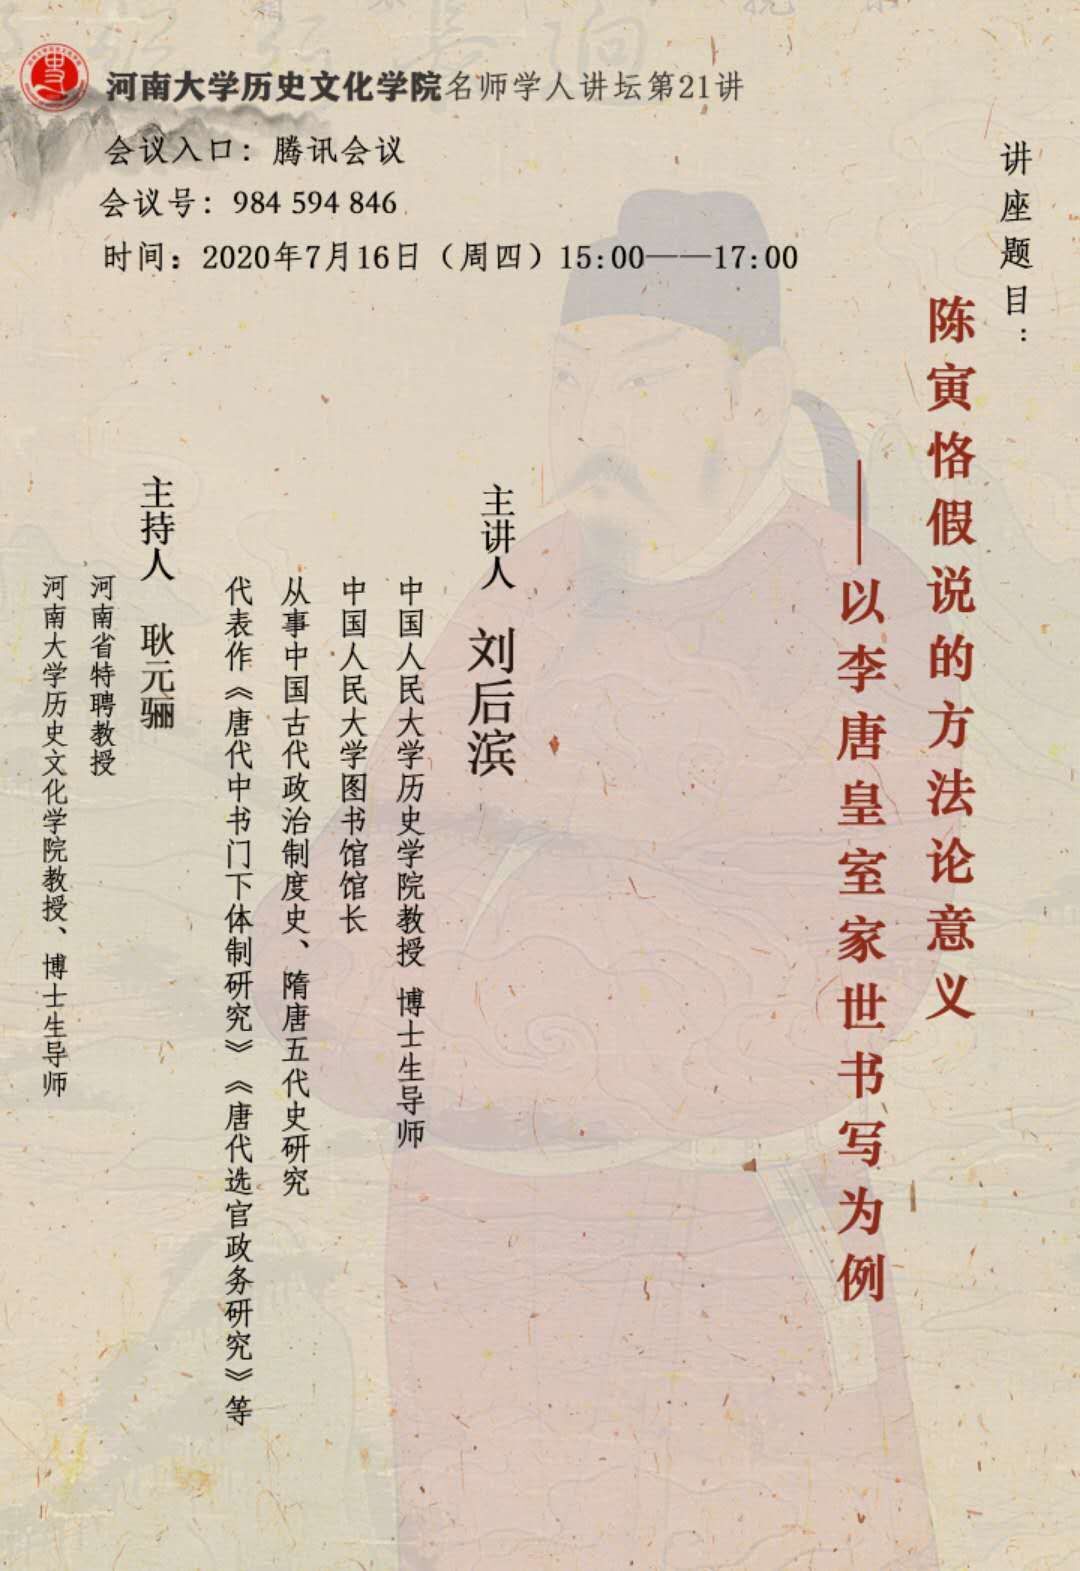 河南大学历史文化学院名师学人讲坛第21讲
会议入口：腾讯会议
会议号：984 594 846
时间：2020年7月16日（周四）15:00——17:00
讲座题目：
陈寅恪假说的方法论意义
——以李唐皇室家世书写为例
主讲人 刘后滨
中国人民大学历史学院教授 博士生导师
中国人民大学图书馆馆长
从事中国古代政治制度史、隋唐五代史研究
代表作《唐代中书门下体制研究》《唐代选官政务研究》等
主持人 耿元骊
河南省特聘教授
河南大学历史文化学院教授、博士生导师